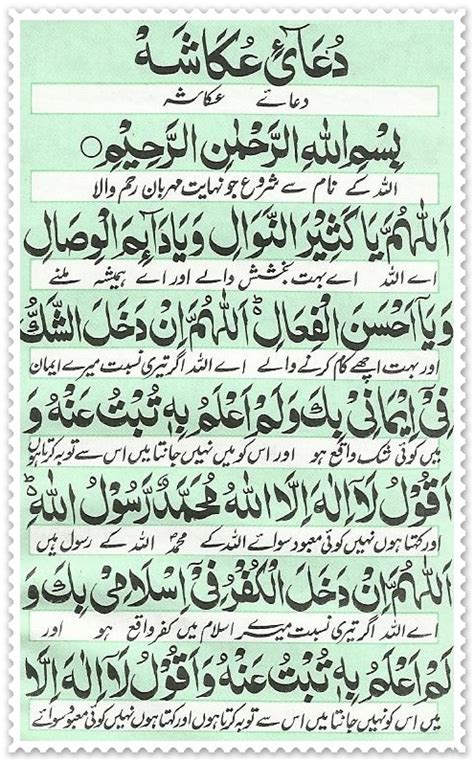 دُعَائِ عُکَاشَہ
دعائے عکاشہ
بِسْمِ اللهِ الرَّحْمٰنِ الرَّحِيْمِ ○
اللہ کے نام سے شروع جو نہایت مہربان رحم والا
اَللّٰهُمَّ يَا كَثِيْرَ النَّوَالِ وَيَا دَآئِمَ الْوِصَالِ
اے اللہ اے بہت بخشش والے اور اے ہمیشہ ملنے
وَيَآ اَحْسَنَ الْفِعَالِ ؕ اَللّٰهُمَّ اِنْ دَخَلَ الشَّكُّ
اور بہت اچھے کام کرنے والے اے اللہ اگر تیری نسبت میرے ایمان
فِىْٓ اِيْمَانِىْ بِكَ وَلَمْ اَعْلَمْ بِهٖ تُبْتُ عَنْهُ وَ
میں کوئی شک واقع ہو اور اس کو میں نہیں جانتا میں اس سے توبہ کرتا ہوں
اَقُوْلُ لَآ اِلٰهَ اِلَّا اللهُ مُحَمَّدٌ رَّسُوْلُ اللهِ ؕ
اور کہتا ہوں نہیں کوئی معبود سوائے اللہ کے محمدؐ اللہ کے رسول ہیں
اَللّٰهُمَّ اِنْ دَخَلَ الْكُفْرُ فِىْٓ اِسْلَامِىْ بِكَ وَ
اے اللہ اگر تیری نسبت میرے اسلام میں کفر واقع ہو اور
لَمْ اَعْلَمْ بِهٖ تُبْتُ عَنْهُ وَ اَقُوْلُ لَآ اِلٰهَ اِلَّا
میں اس کو نہیں جانتا میں اس سے توبہ کرتا ہوں اور کہتا ہوں نہیں کوئی معبود سوائے